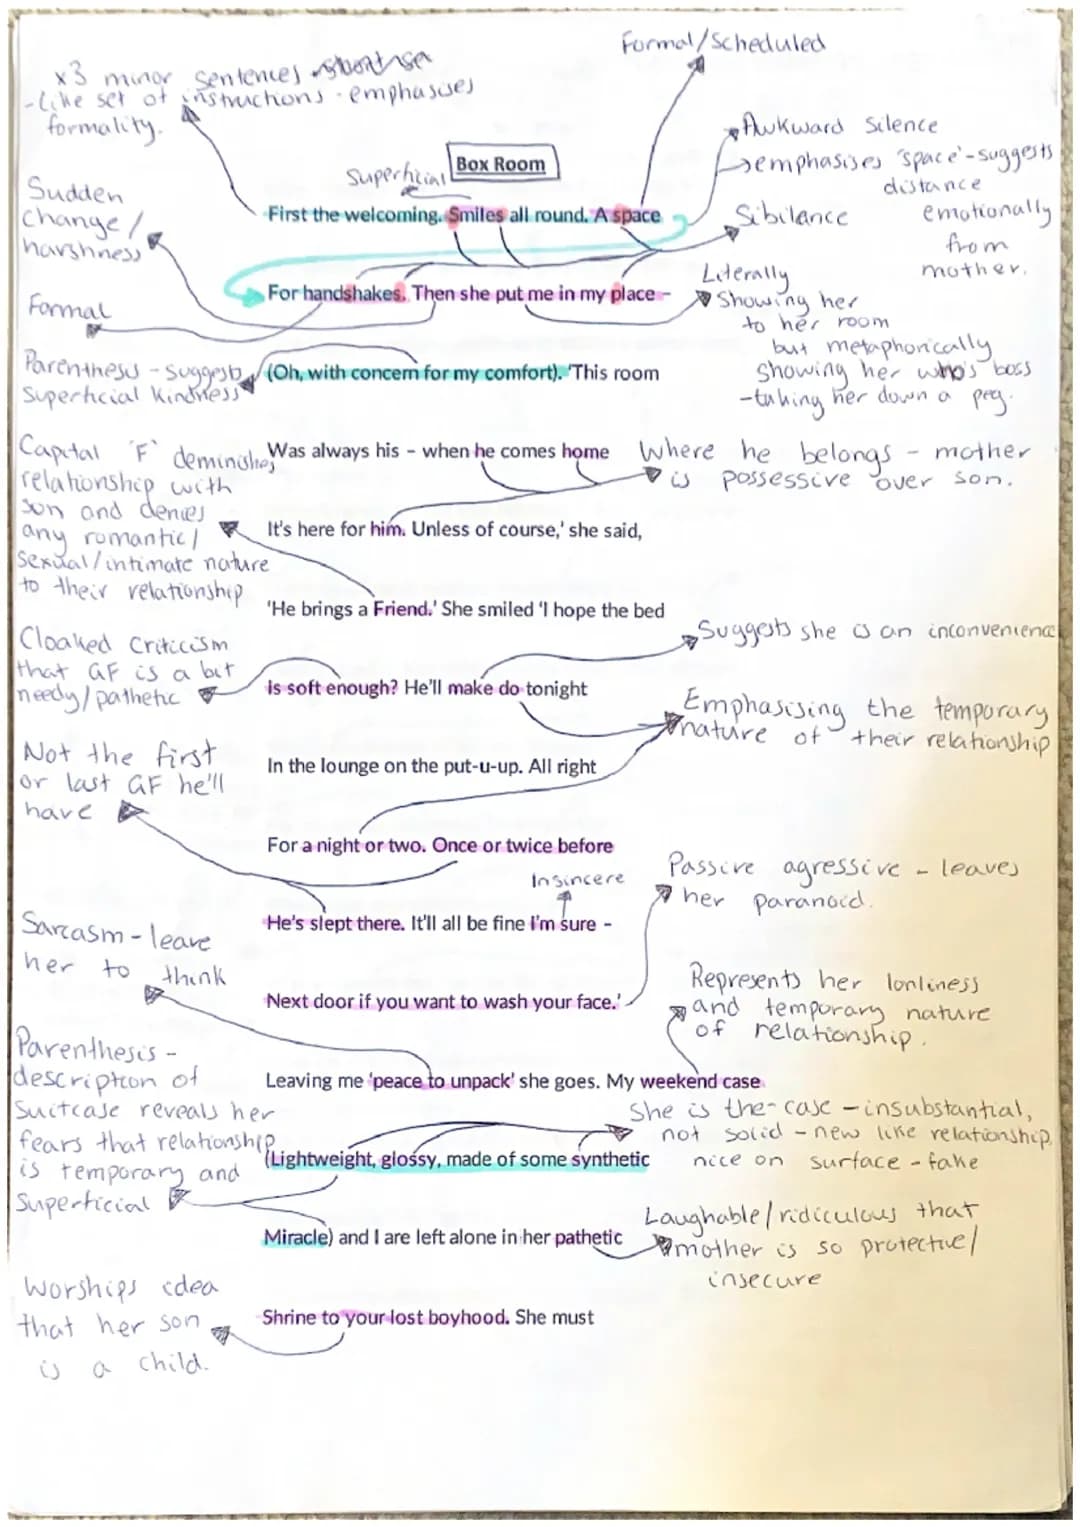 Formal/Scheduled
x3 minor sentences
-like set of instructions - emphasises
formality.
Awkward Silence
emphasises 'space' - suggests
distance
emotionally
from
mother.
Box Room
Superficial
Sudden
change/
harshness
First the welcoming. Smiles all round. A space
Sibilance
For handshakes. Then she put me in my place –
Literally
Showing her
to her room
but metaphorically
showing her who's boss
-taking her down a peg.
Formal
Parenthesis - suggests
superficial kindness
(Oh, with concern for my comfort). 'This room
Was always his – when he comes home
Where he belongs - mother
is possessive over son.
Capital 'F' deminishes
relationship with
son and denies
any romantic/
sexual/intimate nature
to their relationship
It's here for him. Unless of course,' she said,
'He brings a Friend.' She smiled 'I hope the bed
Suggests she is an inconvenience
Cloaked criticism
that GF is a bit
needy/pathetic
is soft enough? He'll make do tonight
Emphasising the temporary
nature of their relationship
Not the first
or last GF he'll
have
In the lounge on the put-u-up. All right
For a night or two. Once or twice before
Insincere
Passive agressive - leaves
her paranoid.
He's slept there. It'll all be fine I'm sure –
Sarcasm - leave
her to think
Next door if you want to wash your face.'
Represents her lonliness
and temporary nature
of relationship.
Leaving me 'peace to unpack' she goes. My weekend case
Parenthesis -
description of
suitcase reveals her
fears that relationship
is temporary and
superficial
She is the case - insubstantial,
not solid - new like relationship,
nice on surface - fake
(Lightweight, glossy, made of some synthetic
Miracle) and I are left alone in her pathetic
Laughable/ridiculous that
mother is so protective/
insecure
Worships idea
that her son
is a child.
Shrine to your lost boyhood. She must